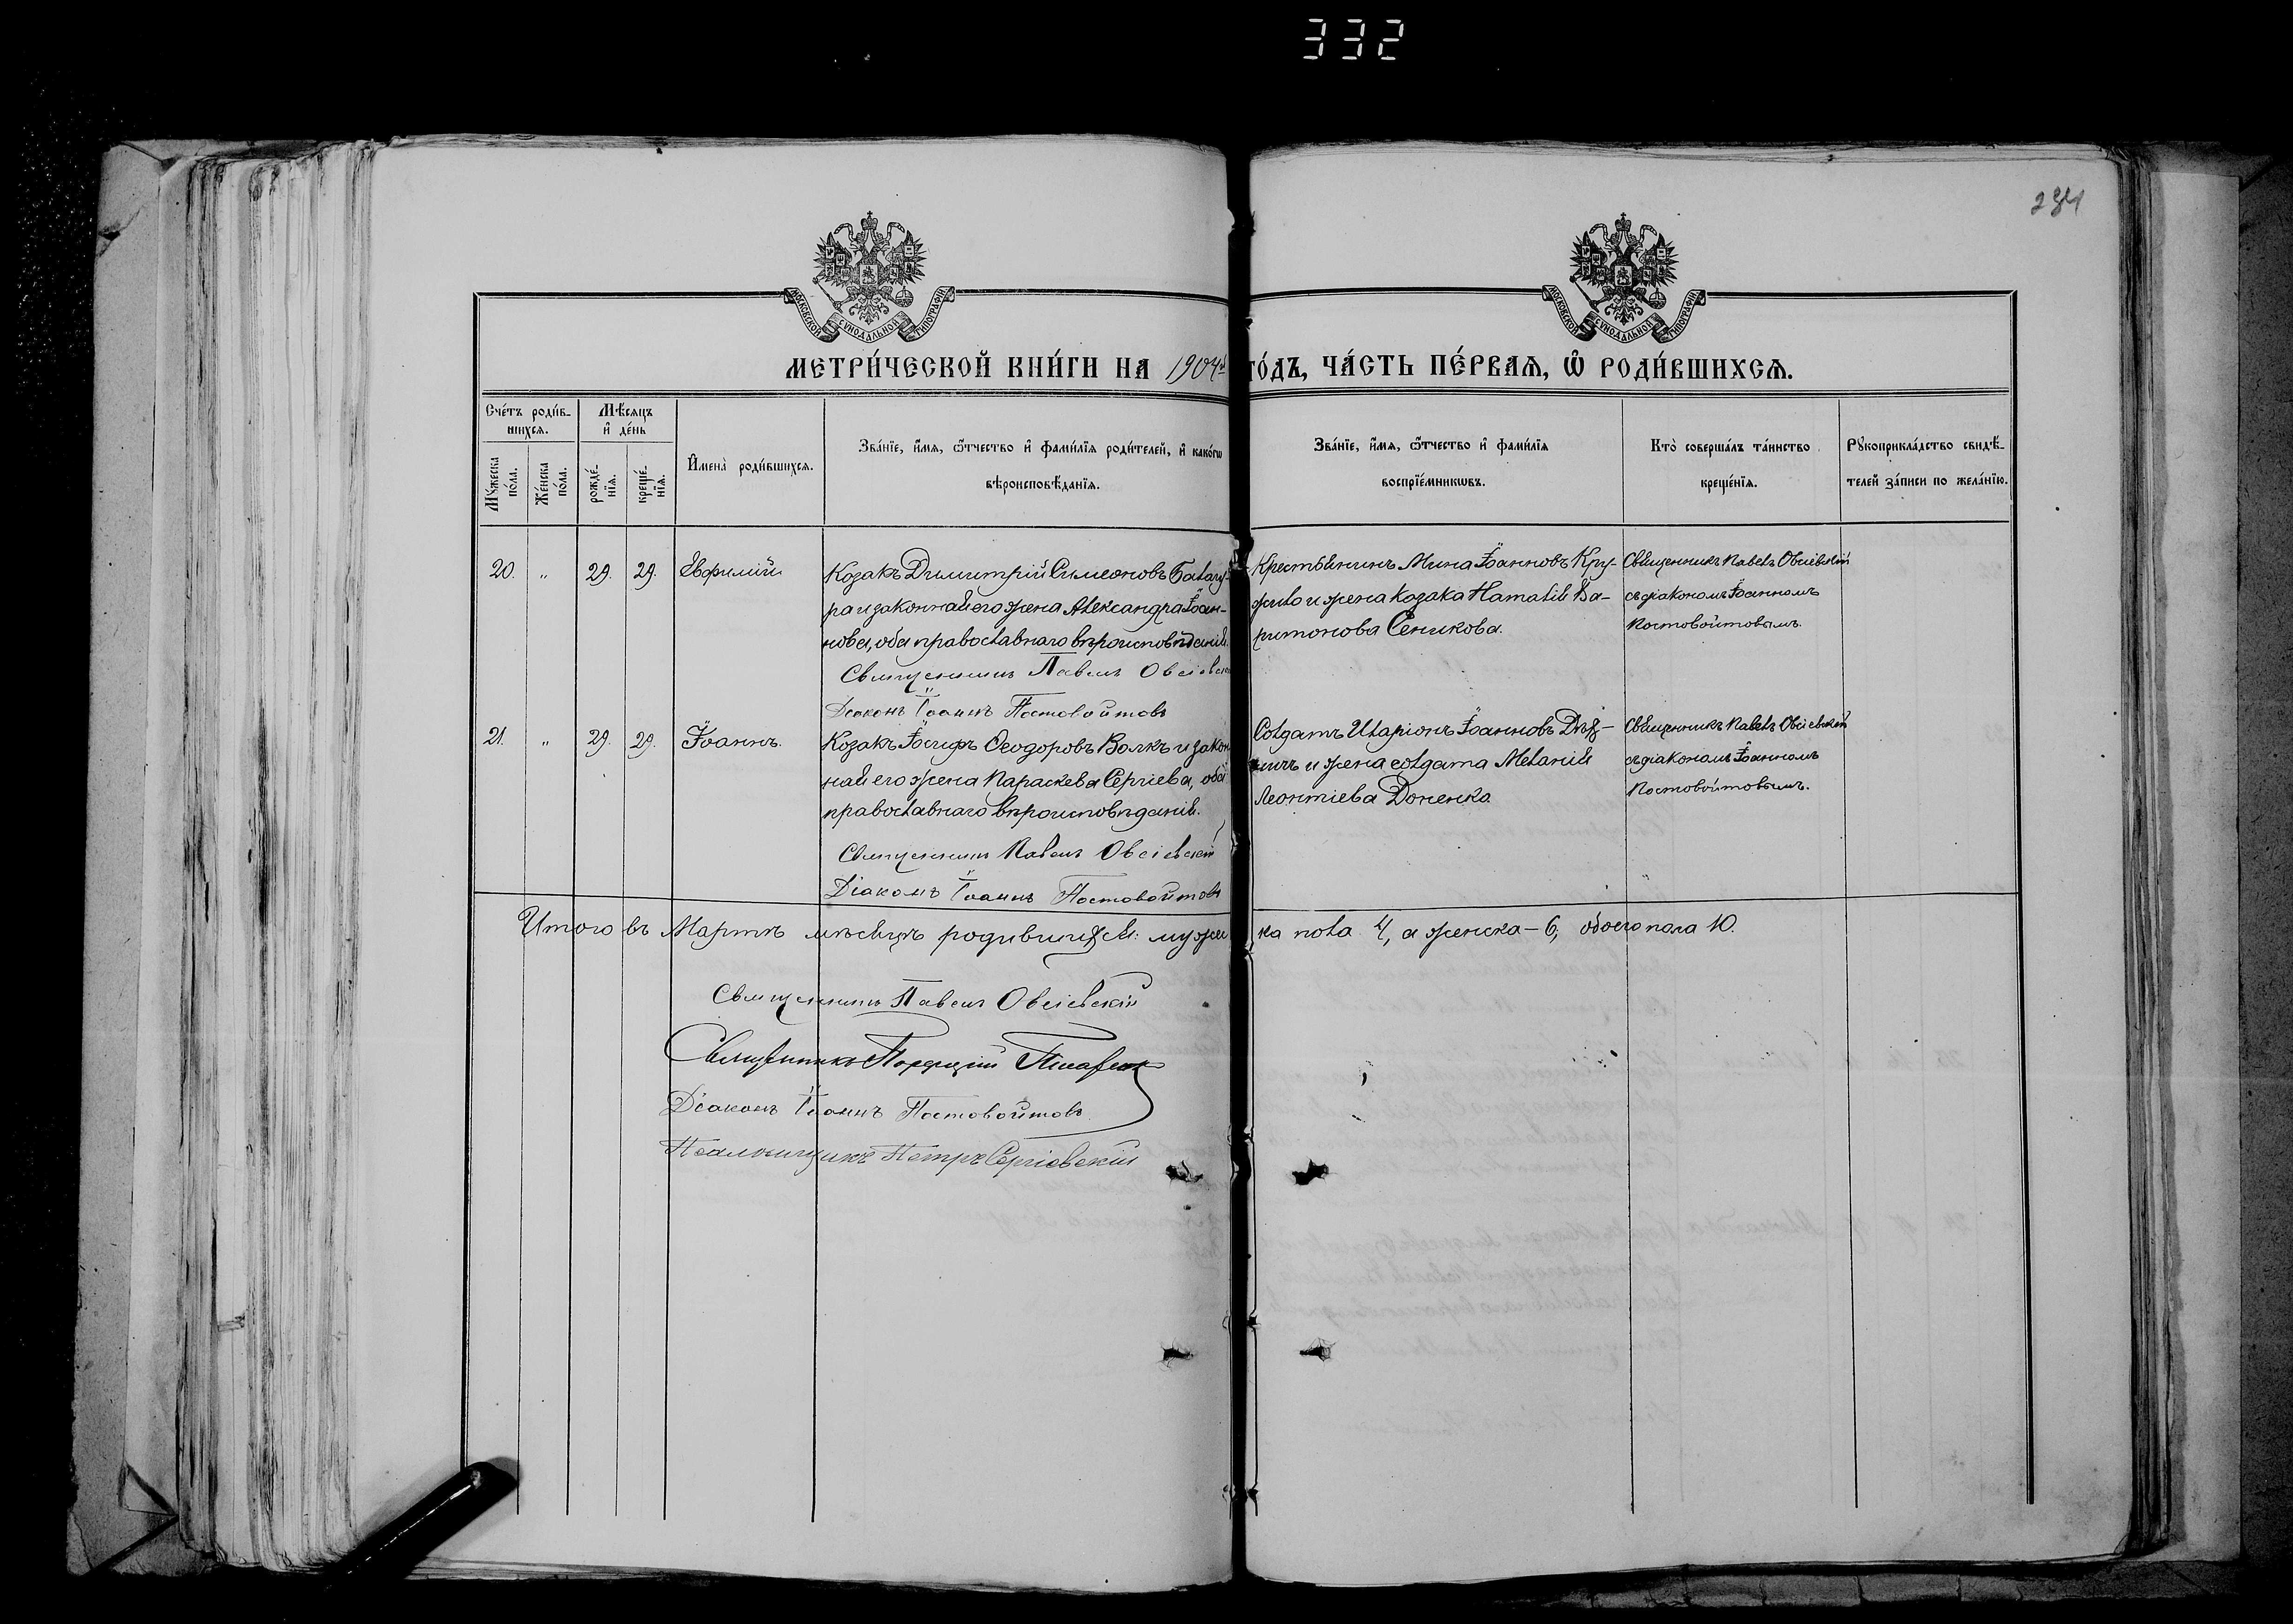 332
284
МОСКОВСКОЙ СѴНОДАЛЬНОЙ ТИПОГРАФІИ
МОСКОВСКОЙ СѴНОДАЛЬНОЙ ТИПОГРАФІИ
МЕТРИ́ЧЕСКОЙ КНИ́ГИ НА 1904й ГО́ДЪ, ЧА́СТЬ ПЕ́РВАѦ, Ѽ РОДИ́ВШИХСѦ.
Сче́тъ роди́в-
шихсѧ.
Мѣ́сѧцъ
и҆ де́нь
Мꙋ́жеска
по́ла.
Же́нска
по́ла.
рожде́-
нїѧ.
креще́-
нїѧ.
И҆мена̀ роди́вшихсѧ.
Зва́нїе, и҆́мѧ, ѻ҆́тчество и҆ фами́лїѧ роди́телей, и҆ како́гѡ
вѣроисповѣ́данїѧ.
Зва́нїе, и҆́мѧ, ѻ҆́тчество и҆ фами́лїѧ
воспрїе́мникѡвъ.
Кто̀ соверша́лъ та́инство
креще́нїѧ.
Рꙋкоприкла́дство свидѣ́-
телей за́писи по жела́нїю.
20. „ 29. 29. Евфимій
Козакъ Димитрій Симеоновъ Балау-
ра и законная его жена Александра Іоан-
нова, оба православнаго вѣроисповѣданія.
Священникъ Павелъ Овсіевскі
Діаконъ Іоаннъ Постовойтовъ
Крестьянинъ Мина Іоанновъ Кру-
жило и жена козака Наталія Ха-
ритонова Сеникова.
Священникъ Павелъ Овсіевскій
съ діакономъ Іоанномъ
Постовойтовымъ.
21. „ 29. 29. Іоаннъ.
Козакъ Іосифъ Ѳеодоровъ Волкъ и закон
ная его жена Параскева Сергіева, оба
православнаго вѣроисповѣданія.
Священникъ Павелъ Овсіевскій
Діаконъ Іоаннъ Постовойтовъ
Солдатъ Иларіонъ Іоанновъ
и жена солдата Меланія
Леонтіева Доненко.
Священникъ Павелъ Овсіевскій
съ діакономъ Іоанномъ
Постовойтовымъ.
Итого въ Мартѣ мѣсяцѣ родившихся: мужес ка пола 4, а женска – 6, обоего пола 10.
Священникъ Павелъ Овсіевскій
Священникъ Порфирій
Діаконъ Іоаннъ Постовойтовъ
Псаломщикъ Петръ Сергіевскій